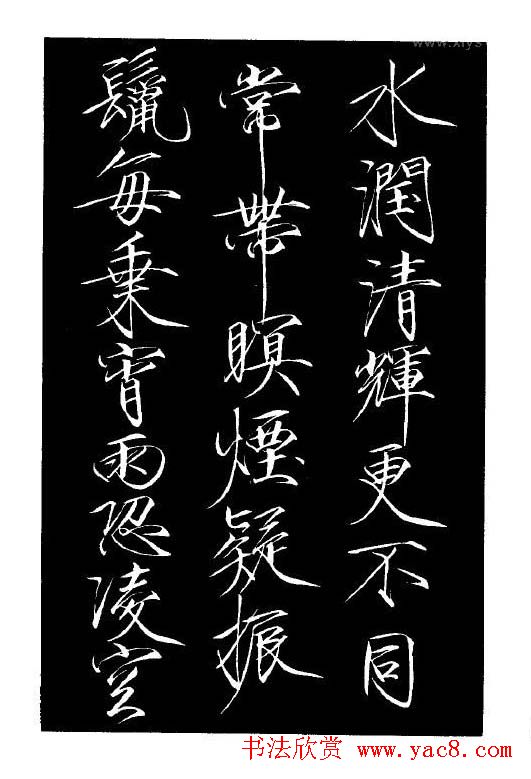 水潤清輝更不同
常帶暝煙疑振
鬣每乘宵雨恐凌空
书法欣赏 www.yac8.com